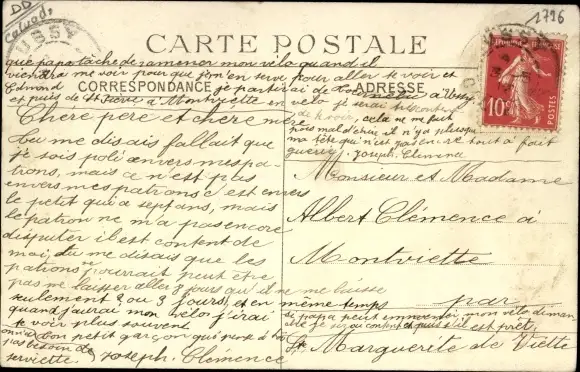 DD
Calvad,
1796
CARTE POSTALE
que papa tâche de ramener mon vélo quand il
viendra me voir pour que j'en en serve pour aller te voir et
Edmond
CORRESPONDANCE
je partirai de à Ussy
ADRESSE
et puis de St Pierre à Montviette en vélo je serai content
de vous, cela ne me fait
Chère père et chère mère
pas mal chez il n'y a plus que
ma tête qui n'est pas en core tout à fait
guérie. Joseph Clémence
tu me disais fallait que
je sois poli envers mes pa-
trons, mais ce n'est pas
envers mes patrons c est envers
le petit qui a sept ans, mais
le patron ne m'a pas encore
disputer il est content de
moi, tu me disais que les
patrons pourrait peut être
pas me laisser aller 8 jours qu'il ne me laisse
seulement 2 ou 3 jours, et en même temps
quand j'aurai mon vélo j'irai
te voir plus souvent
si papa peut emmener mon vélo diman-
che je serai content et puis s'il est prêt
ton petit garçon qui pense à toi
pas besoin de
serviette. Joseph Clémence
10
POSTES
Monsieur et Madame
Albert Clémence à
Montviette
par
Ste Marguerite de Viette